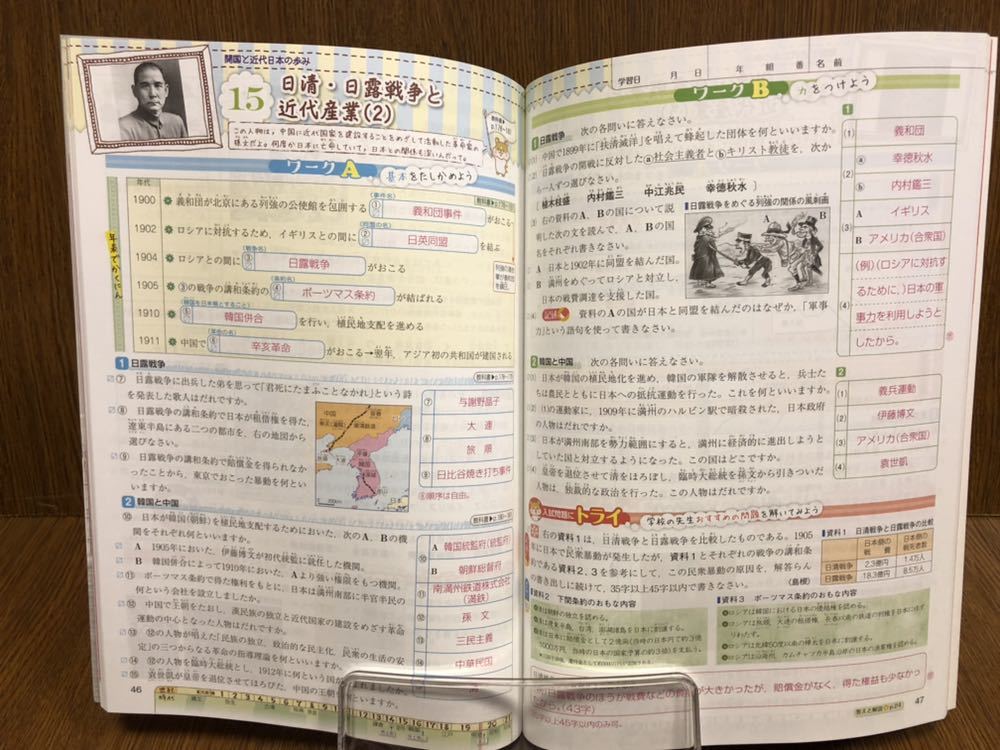 開国と近代日本の歩み
15
日清・日露戦争と
近代産業(2)
この人物は，中国に近代国家を建設することをめざして活動した革命家の
孫文だよ。何度か日本に亡命していて，日本との関係も深いんだって。
ワークA 基本をたしかめよう
年代
年表でかくにん
1900 義和団が北京にある列強の公使館を包囲する
(事件名)
① 義和団事件
がおこる
1902 ロシアに対抗するため，イギリスとの間に
② 日英同盟
を結ぶ
1904 ロシアとの間に
(戦争名)
③ 日露戦争
がおこる
1905 ③の戦争の講和条約の
(条約名)
④ ポーツマス条約
が結ばれる
1910
(韓国を日本領とすること)
⑤ 韓国併合
を行い，植民地支配を進める
1911 中国で
(革命の名)
⑥ 辛亥革命
がおこる→翌年，アジア初の共和国が建国される
1 日露戦争
⑦ 日露戦争に出兵した弟を思って「君死にたまふことなかれ」という詩
を発表した歌人はだれですか。
⑧ 日露戦争の講和条約で日本が租借権を得た，
遼東半島にある二つの都市を，右の地図から
選びなさい。
⑨ 日露戦争の講和条約で賠償金を得られな
かったことから，東京でおこった暴動を何とい
いますか。
中国
長春
南満州鉄道
旅順
大連
平壌
韓国
漢城
釜山
日本
⑦ 与謝野晶子
⑧ 大連
旅順
⑨ 日比谷焼き打ち事件
⑧順序は自由。
2 韓国と中国
⑩ 日本が韓国(朝鮮)を植民地支配するためにおいた，次のA，Bの機
関をそれぞれ何といいますか。
A 1905年において，伊藤博文が初代統監に就任した機関。
B 韓国併合によって1910年においた，Aより強い権限をもつ機関。
⑪ ポーツマス条約で得た権利をもとに，日本は満州南部に半官半民の
何という会社を設立しましたか。
⑫ 中国で王朝をたおし，漢民族の独立と近代国家の建設をめざす革命
運動の中心となった人物はだれですか。
⑬ ⑫の人物が唱えた「民族の独立，政治的な民主化，民衆の生活の安
定」の三つからなる革命の指導理論を何といいますか。
⑭ ⑫の人物を臨時大総統とし，1912年に何という国が
⑮ 袁世凱が皇帝を退位させてほろびた，中国の王朝
⑩
A 韓国統監府(統監府)
B 朝鮮総督府
⑪ 南満州鉄道株式会社
(満鉄)
⑫ 孫文
⑬ 三民主義
⑭ 中華民国
46
学習日 月 日 年 組 番 名前
ワークB 力をつけよう
1 日露戦争 次の各問いに答えなさい。
(1) 中国で1899年に「扶清滅洋」を唱えて蜂起した団体を何といいますか。
(2) 日露戦争の開戦に反対したⓐ社会主義者とⓑキリスト教徒を，次か
ら一人ずつ選びなさい。
〔植木枝盛 内村鑑三 中江兆民 幸徳秋水〕
(3) 右の資料のA，Bの国について説
明した次の文を読んで，A，Bの国
名をそれぞれ書きなさい。
A 日本と1902年に同盟を結んだ国。
B 満州をめぐってロシアと対立し，
日本の戦費調達を支援した国。
■日露戦争をめぐる列強の関係の風刺画
(4) 記述 資料のAの国が日本と同盟を結んだのはなぜか，「軍事
力」という語句を使って書きなさい。
2 韓国と中国 次の各問いに答えなさい。
(1) 日本が韓国の植民地化を進め，韓国の軍隊を解散させると，兵士た
ちは農民とともに日本への抵抗運動を行った。これを何といいますか。
(2) (1)の運動家に，1909年に満州のハルビン駅で暗殺された，日本政府
の人物はだれですか。
(3) 日本が満州南部を勢力範囲にすると，満州に経済的に進出しようと
していた国と対立するようになった。この国はどこですか。
(4) 皇帝を退位させて清をほろぼし，臨時大総統を孫文から引きついだ
人物は，独裁的な政治を行った。この人物はだれですか。
1
(1) 義和団
(2) ⓐ 幸徳秋水
ⓑ 内村鑑三
(3) A イギリス
B アメリカ(合衆国)
(4) (例)(ロシアに対抗す
るために，)日本の軍
事力を利用しようと
したから。
2
(1) 義兵運動
(2) 伊藤博文
(3) アメリカ(合衆国)
(4) 袁世凱
入試問題にトライ 学校の先生おすすめの問題を解いてみよう
右の資料1は，日清戦争と日露戦争を比較したものである。1905
年に日本で民衆暴動が発生したが，資料1とそれぞれの戦争の講和条
約である資料2，3を参考にして，この民衆暴動の原因を，解答らん
の書き出しに続けて，35字以上45字以内で書きなさい。 (島根)
■資料1 日清戦争と日露戦争の比較
日本側の戦費 日本側の戦死者数
日清戦争 2.3億円 1.4万人
日露戦争 18.3億円 8.5万人
資料2 下関条約のおもな内容
■資料3 ポーツマス条約のおもな内容
●ロシアは韓国における日本の優越権を認める。
日露戦争のほうが戦費などの
が大きかったが，賠償金がなく，得た権益も少なかっ
(43字)
字以上45字以内のみ可。
答えと解説 p.24
47